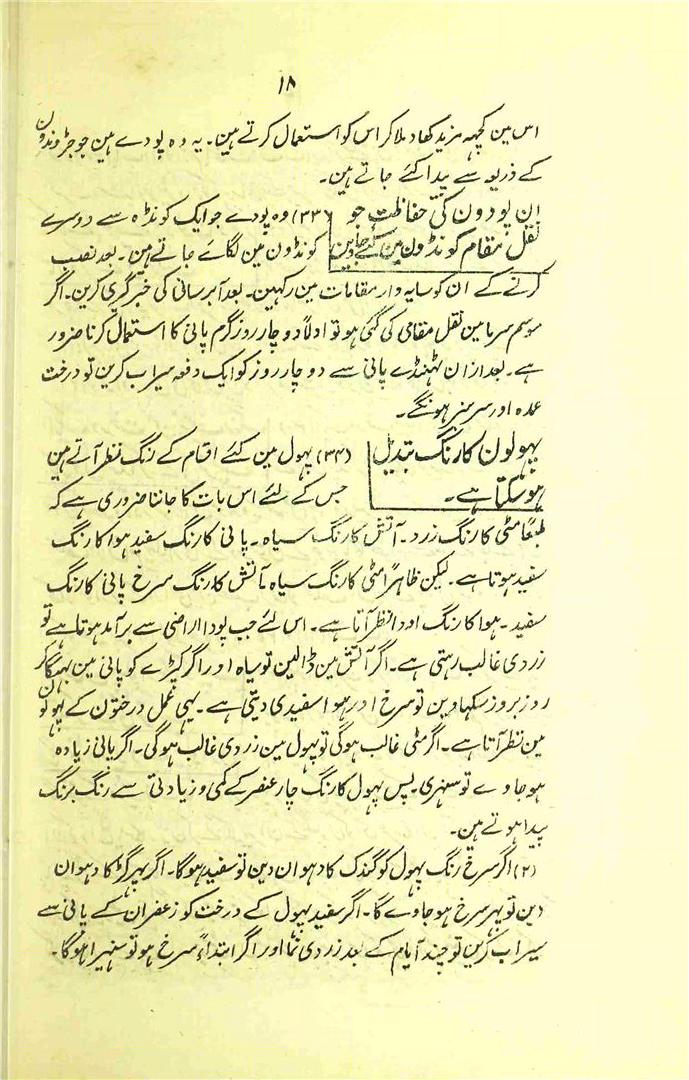 ۱۸
اس مین کچہہ مزید کھاد ملا کر اس کو استعمال کرتے ہین۔ یہ وہ پودے ہین جو جڑوندون
کے ذریعہ سے پیدا کئے جاتے ہین۔
ان پودون کی حفاظت جو (۳۳) وہ پودے جو ایک کونڈہ سے دوسرے
نقل مقام کونڈون مین کئے جاوین کونڈون مین لگائے جاتے ہین۔ بعد نصب
کرنے کے ان کو سایہ دار مقامات مین رکہین۔ بعد آبرسانی کی خبر گیری کرین۔ اگر
موسم سرما مین نقل مقامی کی گئی ہو تو اولاً دو چار روز گرم پانی کا استعمال کرنا ضرور
ہے۔ بعد ازان ٹہنڈے پانی سے دو چار روز کو ایک دفعہ سیراب کرین تو درخت
عمدہ اور سرسبز ہونگے۔
پہولون کا رنگ تبدیل (۳۴) پہول مین کئے اقسام کے رنگ نظر آتے ہین
ہو سکتا ہے۔ جس کے لئے اس بات کا جاننا ضروری ہے کہ
طبعاً مٹی کا رنگ زرد۔ آتش کا رنگ سیاہ۔ پانی کا رنگ سفید ہوا کا رنگ
سفید ہوتا ہے۔ لیکن ظاہراً مٹی کا رنگ سیاہ۔ آتش کا رنگ سرخ پانی کا رنگ
سفید۔ ہوا کا رنگ اودا نظر آتا ہے۔ اس لئے جب پودا اراضی سے برآمد ہوتا ہے تو
زردی غالب رہتی ہے۔ اگر آتش مین ڈالین تو سیاہ اور اگر کپڑے کو پانی مین بہگا کر
روز بروز سکہاوین تو سرخ اور ہوا سفیدی دیتی ہے۔ یہی عمل درختون کے پہولون
مین نظر آتا ہے۔ اگر مٹی غالب ہوگی تو پہول مین زردی غالب ہوگی۔ اگر پانی زیادہ
ہو جاوے تو سنہری۔ پس پہول کا رنگ چار عنصر کے کمی و زیادتی سے رنگ برنگ
پیدا ہوتے ہین۔
(۲) اگر سرخ رنگ پہول کو گندک کا دہوان دین تو سفید ہوگا۔ اگر پہر گڑ کا دہوان
دین تو پہر سرخ ہو جاوے گا۔ اگر سفید پہول کے درخت کو زعفران کے پانی سے
سیراب کرین تو چند ایام کے بعد زردی نما اور اگر ابتداءً سرخ ہو تو سنہرا ہوگا۔